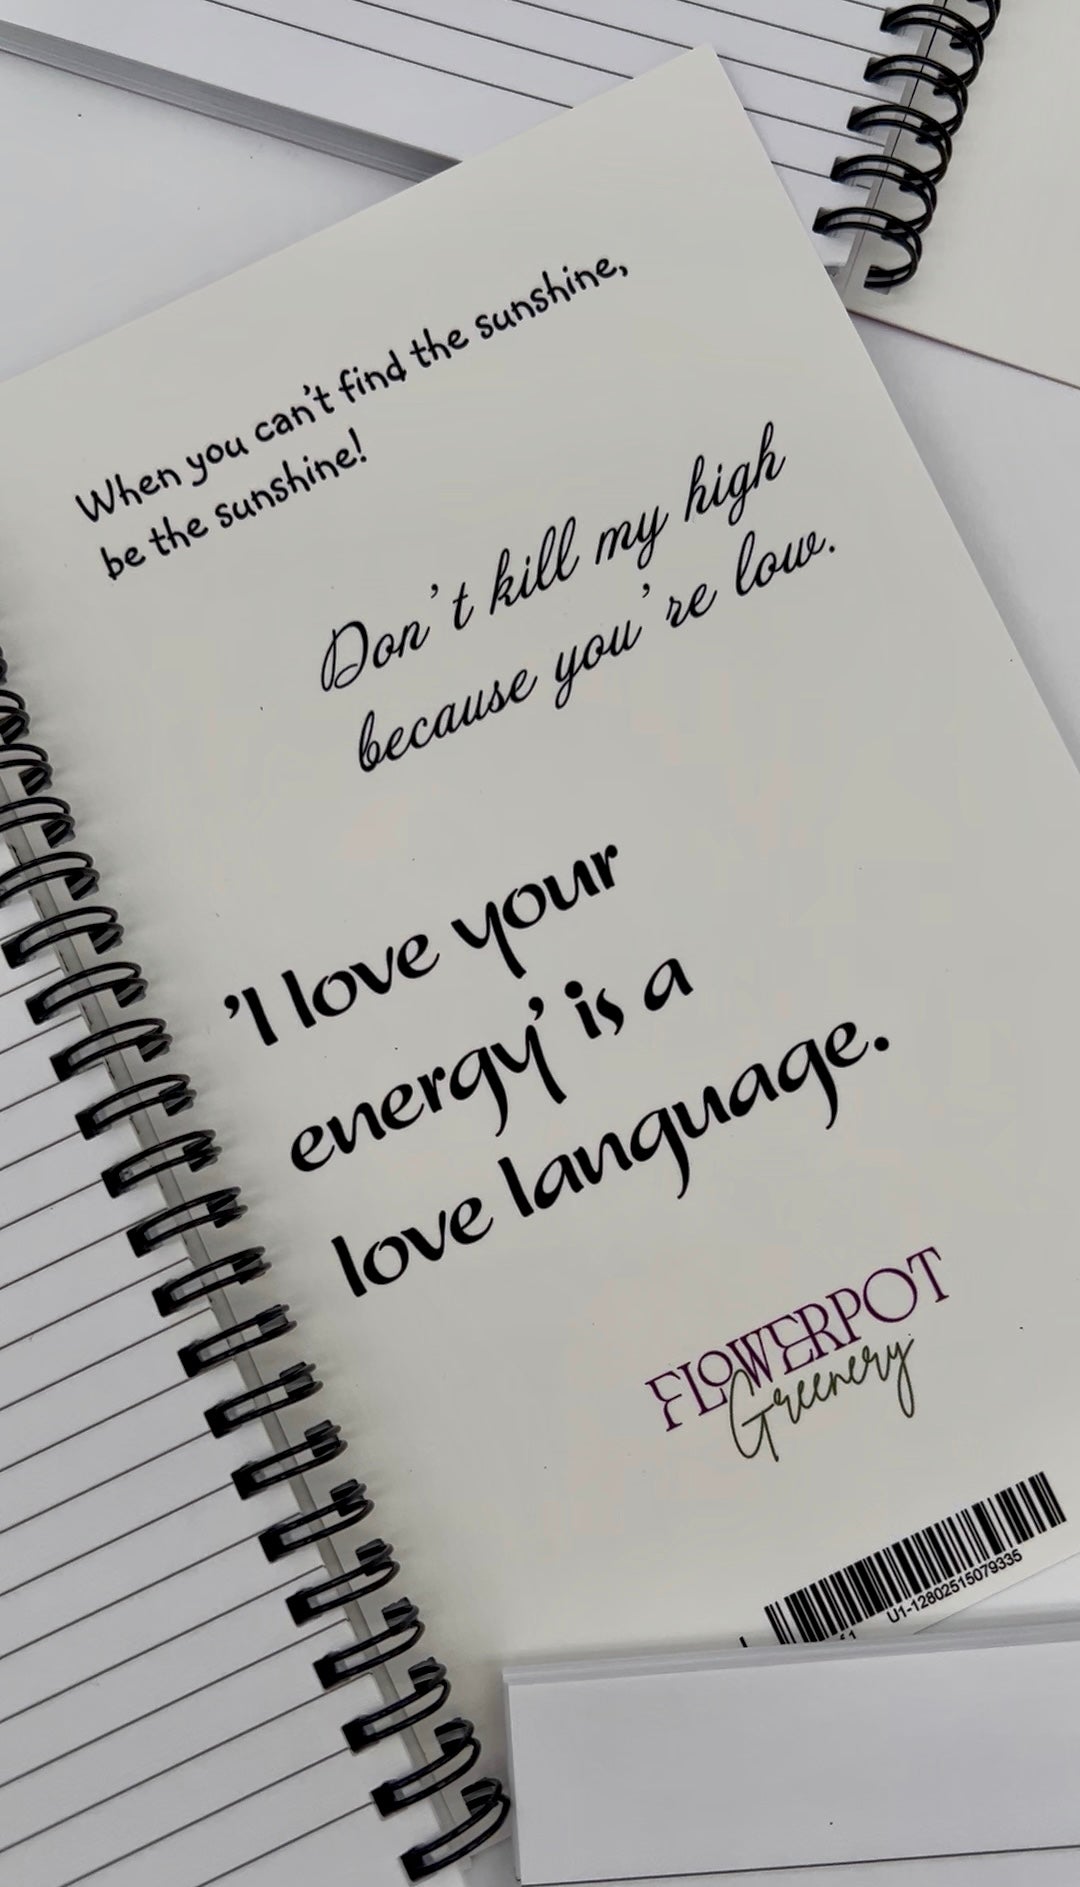 When you can't find the sunshine,
be the sunshine!
Don't kill my high
because you're low.
'I love your
energy' is a
love language.
FLOWERPOT
Greenery
U1-12802515079335